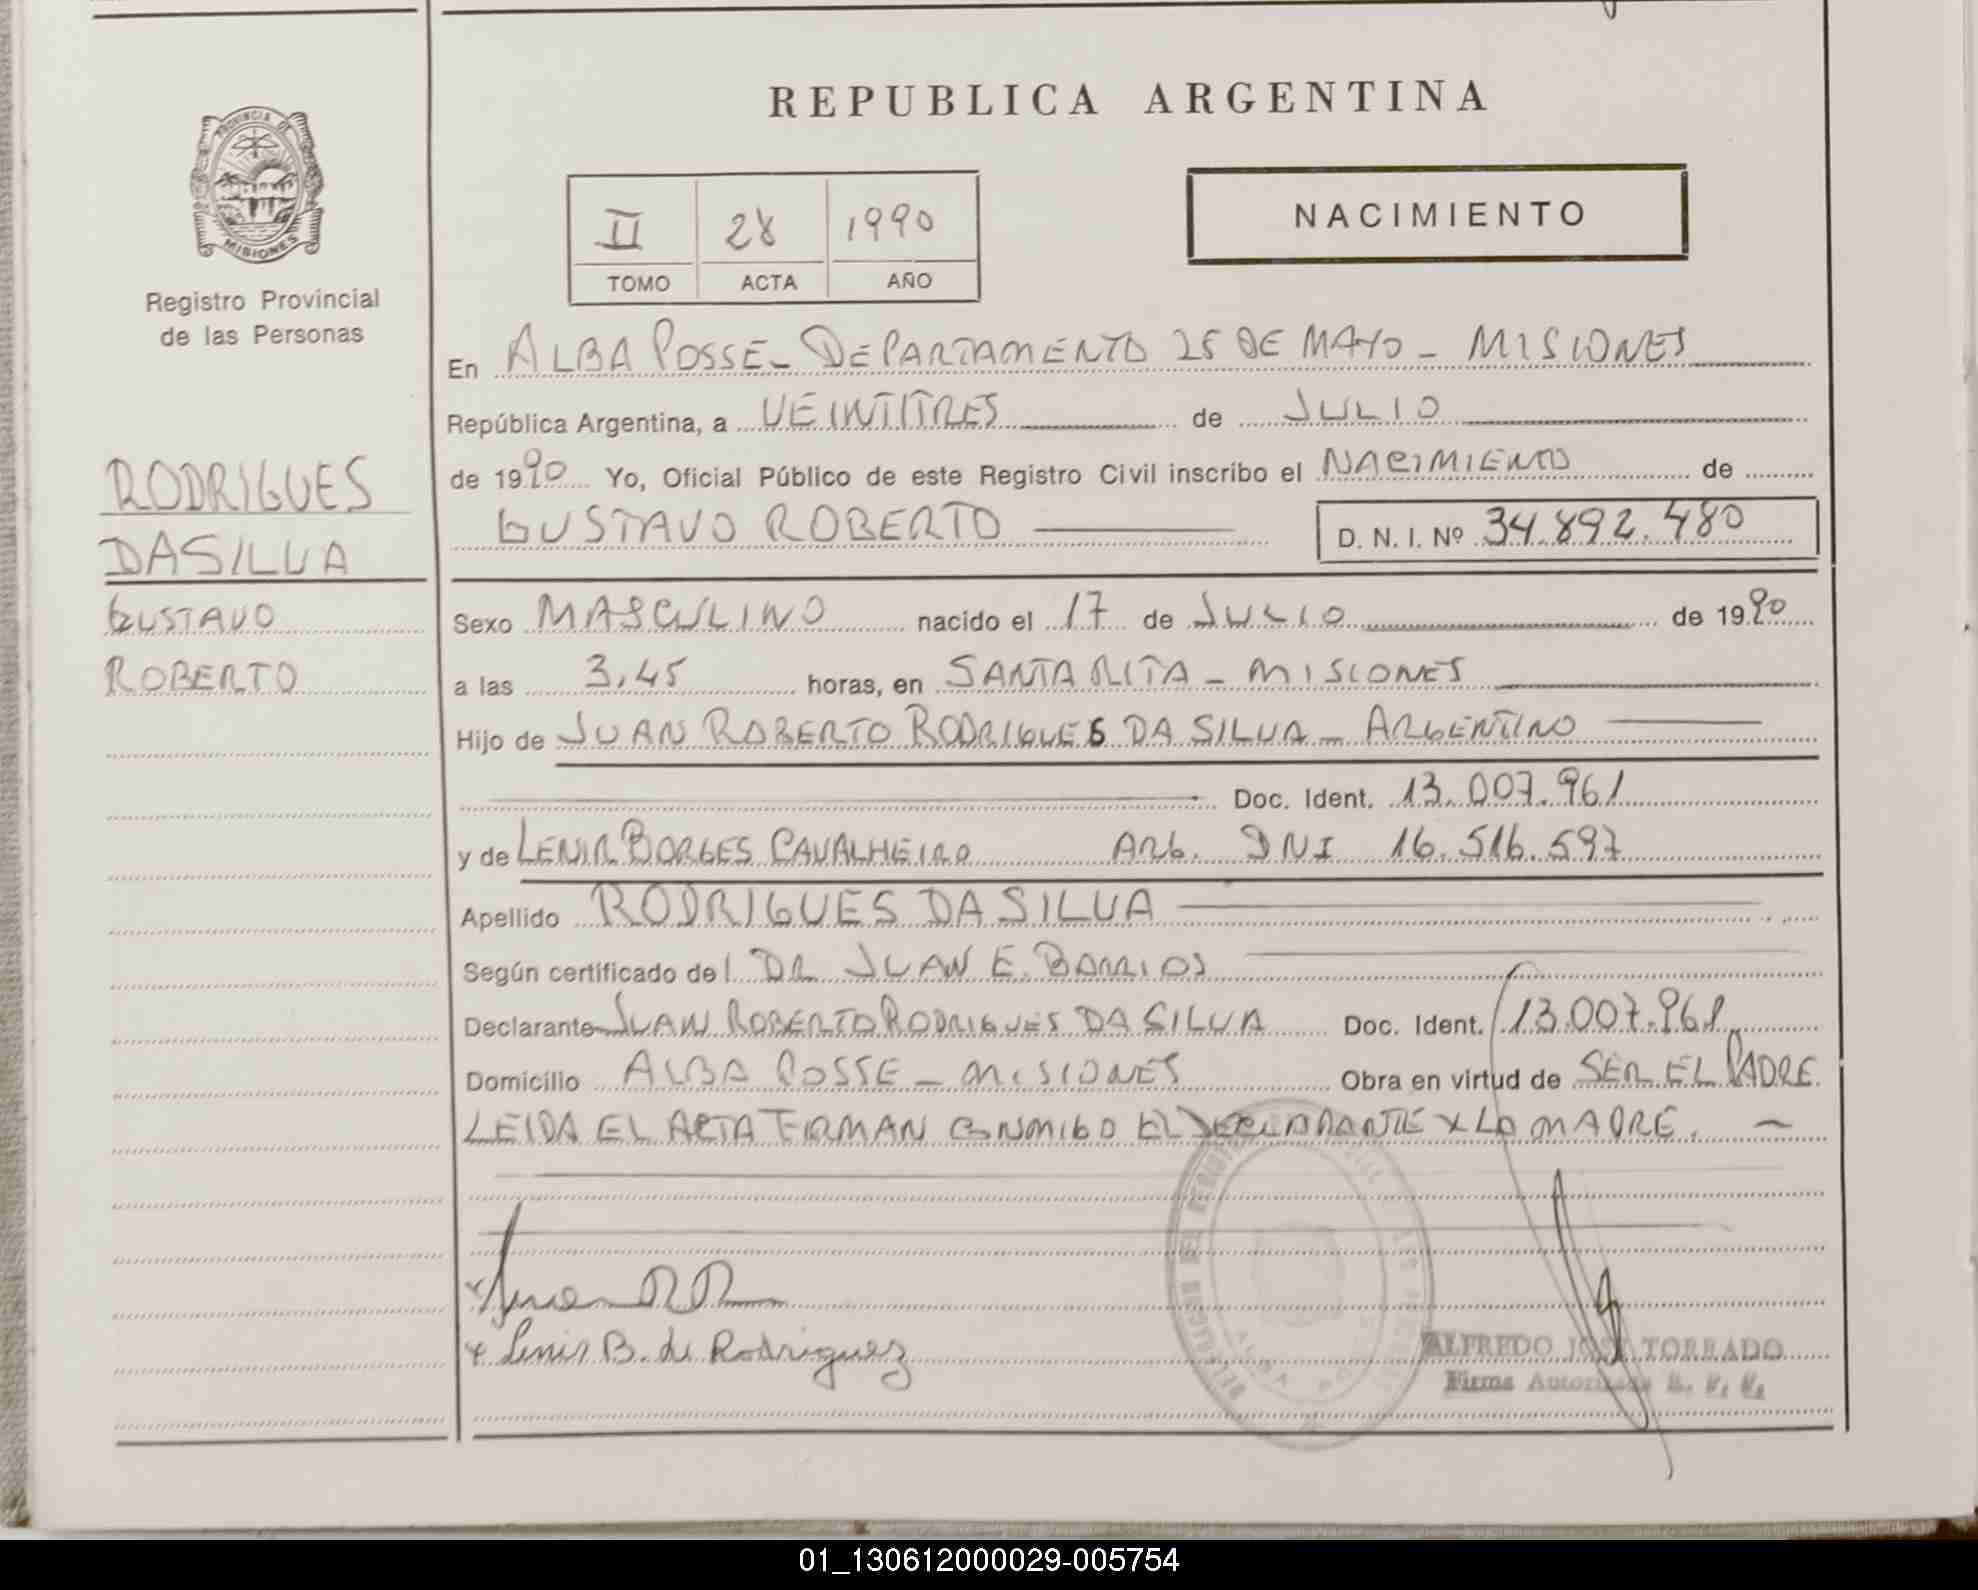 REPUBLICA ARGENTINA
PROVINCIA DE
MISIONES
Registro Provincial
de las Personas
II 28 1990
TOMO ACTA AÑO
NACIMIENTO
En ALBA POSSE - DEPARTAMENTO 25 DE MAYO - MISIONES
República Argentina, a VEINTITRES de JULIO
de 1990 Yo, Oficial Público de este Registro Civil inscribo el NACIMIENTO de
GUSTAVO ROBERTO D. N. I. Nº 34.892.480
RODRIGUES
DASILVA
GUSTAVO
ROBERTO
Sexo MASCULINO nacido el 17 de JULIO de 1990
a las 3,45 horas, en SANTA RITA - MISIONES
Hijo de JUAN ROBERTO RODRIGUES DA SILVA - ARGENTINO
Doc. Ident. 13.007.961
y de LENIR BORGES CAVALHEIRO ARG. DNI 16.516.597
Apellido RODRIGUES DA SILVA
Según certificado del DR JUAN E. BARRIOS
Declarante JUAN ROBERTO RODRIGUES DA SILVA Doc. Ident. 13.007.961
Domicilio ALBA POSSE - MISIONES Obra en virtud de SER EL PADRE
LEIDA EL ACTA FIRMAN CONMIGO EL DECLARANTE Y LA MADRE. -
x Lenir B. de Rodriguez
ALFREDO JOSE TORRADO
Firma Autorizada
01_130612000029-005754